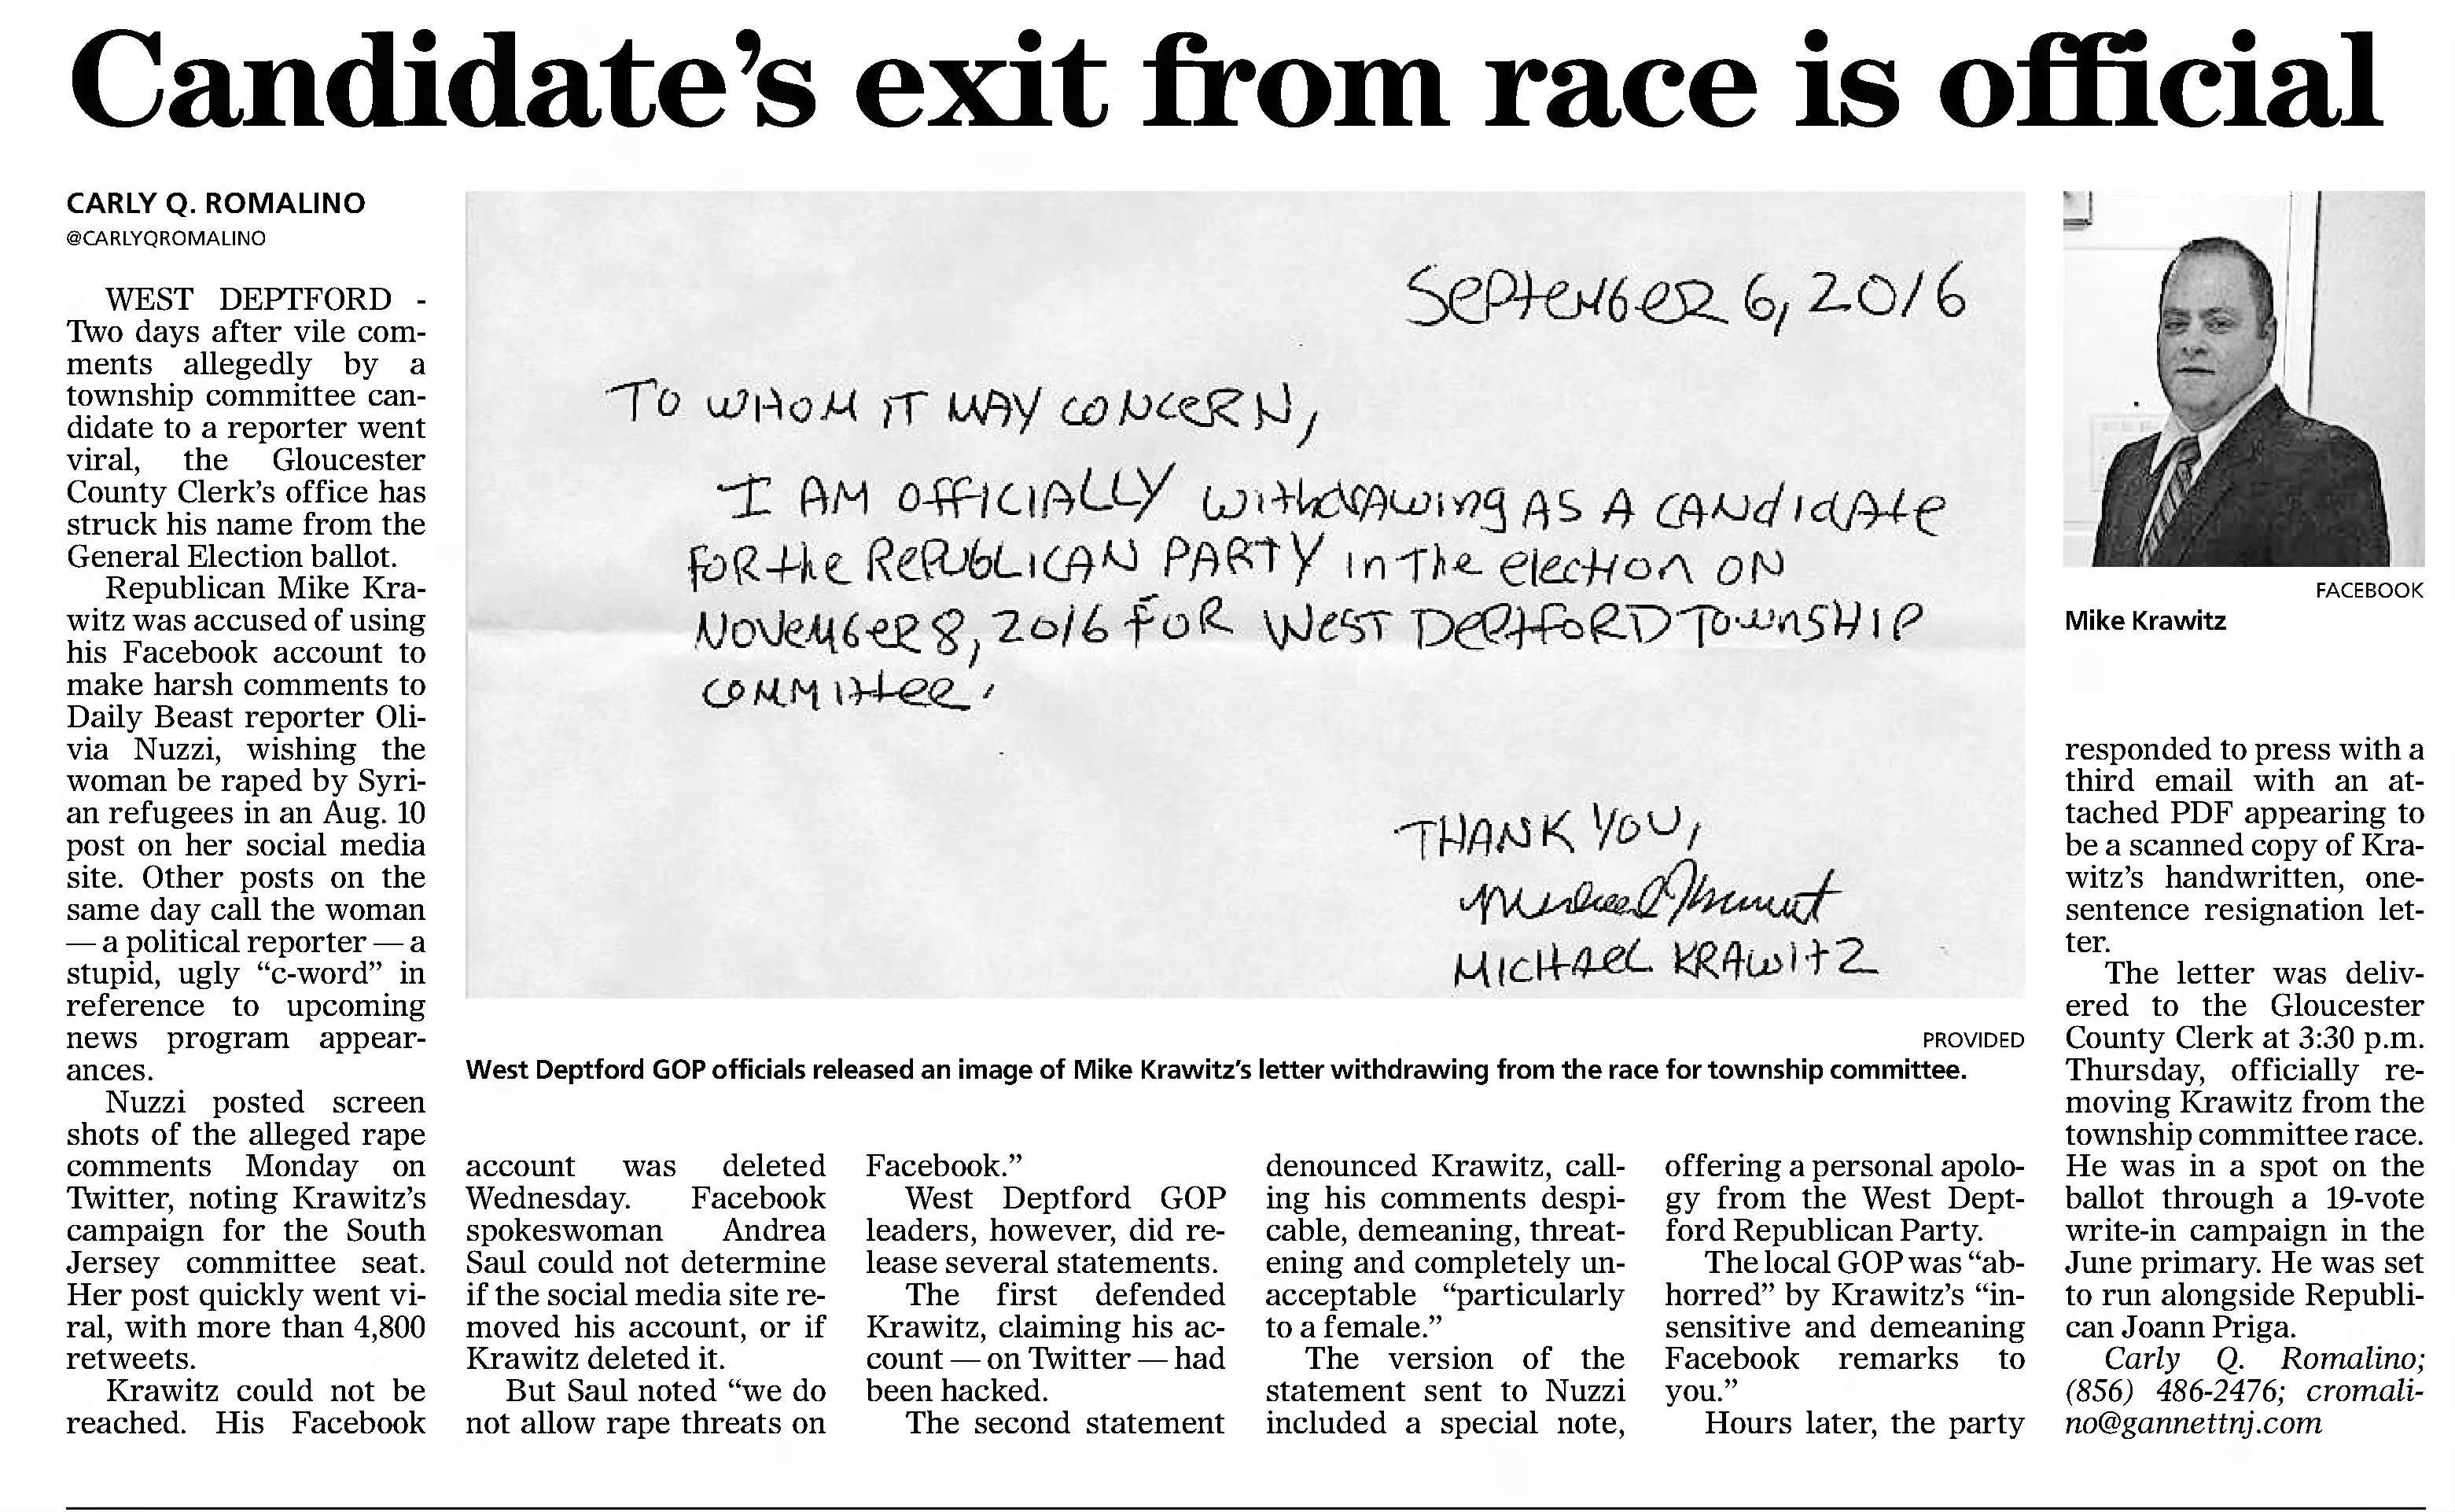 Candidate's exit from race is official
CARLY Q. ROMALINO
@CARLYQROMALINO
WEST DEPTFORD -
Two days after vile com-
ments allegedly by a
township committee can-
didate to a reporter went
viral, the Gloucester
County Clerk's office has
struck his name from the
General Election ballot.
Republican Mike Kra-
witz was accused of using
his Facebook account to
make harsh comments to
Daily Beast reporter Oli-
via Nuzzi, wishing the
woman be raped by Syri-
an refugees in an Aug. 10
post on her social media
site. Other posts on the
same day call the woman
— a political reporter — a
stupid, ugly “c-word” in
reference to upcoming
news program appear-
ances.
Nuzzi posted screen
shots of the alleged rape
comments Monday on
Twitter, noting Krawitz's
campaign for the South
Jersey committee seat.
Her post quickly went vi-
ral, with more than 4,800
retweets.
Krawitz could not be
reached. His Facebook
SEPTEMBER 6, 2016
TO WHOM IT MAY CONCERN,
I AM OFFICIALLY WITHDRAWING AS A CANDIDATE
FOR THE REPUBLICAN PARTY IN THE ELECTION ON
NOVEMBER 8, 2016 FOR WEST DEPTFORD TOWNSHIP
COMMITTEE.
THANK YOU,
MICHAEL KRAWITZ
PROVIDED
West Deptford GOP officials released an image of Mike Krawitz's letter withdrawing from the race for township committee.
account was deleted
Wednesday. Facebook
spokeswoman Andrea
Saul could not determine
if the social media site re-
moved his account, or if
Krawitz deleted it.
But Saul noted “we do
not allow rape threats on
Facebook.”
West Deptford GOP
leaders, however, did re-
lease several statements.
The first defended
Krawitz, claiming his ac-
count — on Twitter — had
been hacked.
The second statement
denounced Krawitz, call-
ing his comments despi-
cable, demeaning, threat-
ening and completely un-
acceptable “particularly
to a female.”
The version of the
statement sent to Nuzzi
included a special note,
offering a personal apolo-
gy from the West Dept-
ford Republican Party.
The local GOP was “ab-
horred” by Krawitz's “in-
sensitive and demeaning
Facebook remarks to
you.”
Hours later, the party
FACEBOOK
Mike Krawitz
responded to press with a
third email with an at-
tached PDF appearing to
be a scanned copy of Kra-
witz's handwritten, one-
sentence resignation let-
ter.
The letter was deliv-
ered to the Gloucester
County Clerk at 3:30 p.m.
Thursday, officially re-
moving Krawitz from the
township committee race.
He was in a spot on the
ballot through a 19-vote
write-in campaign in the
June primary. He was set
to run alongside Republi-
can Joann Priga.
Carly Q. Romalino;
(856) 486-2476; cromali-
no@gannettnj.com